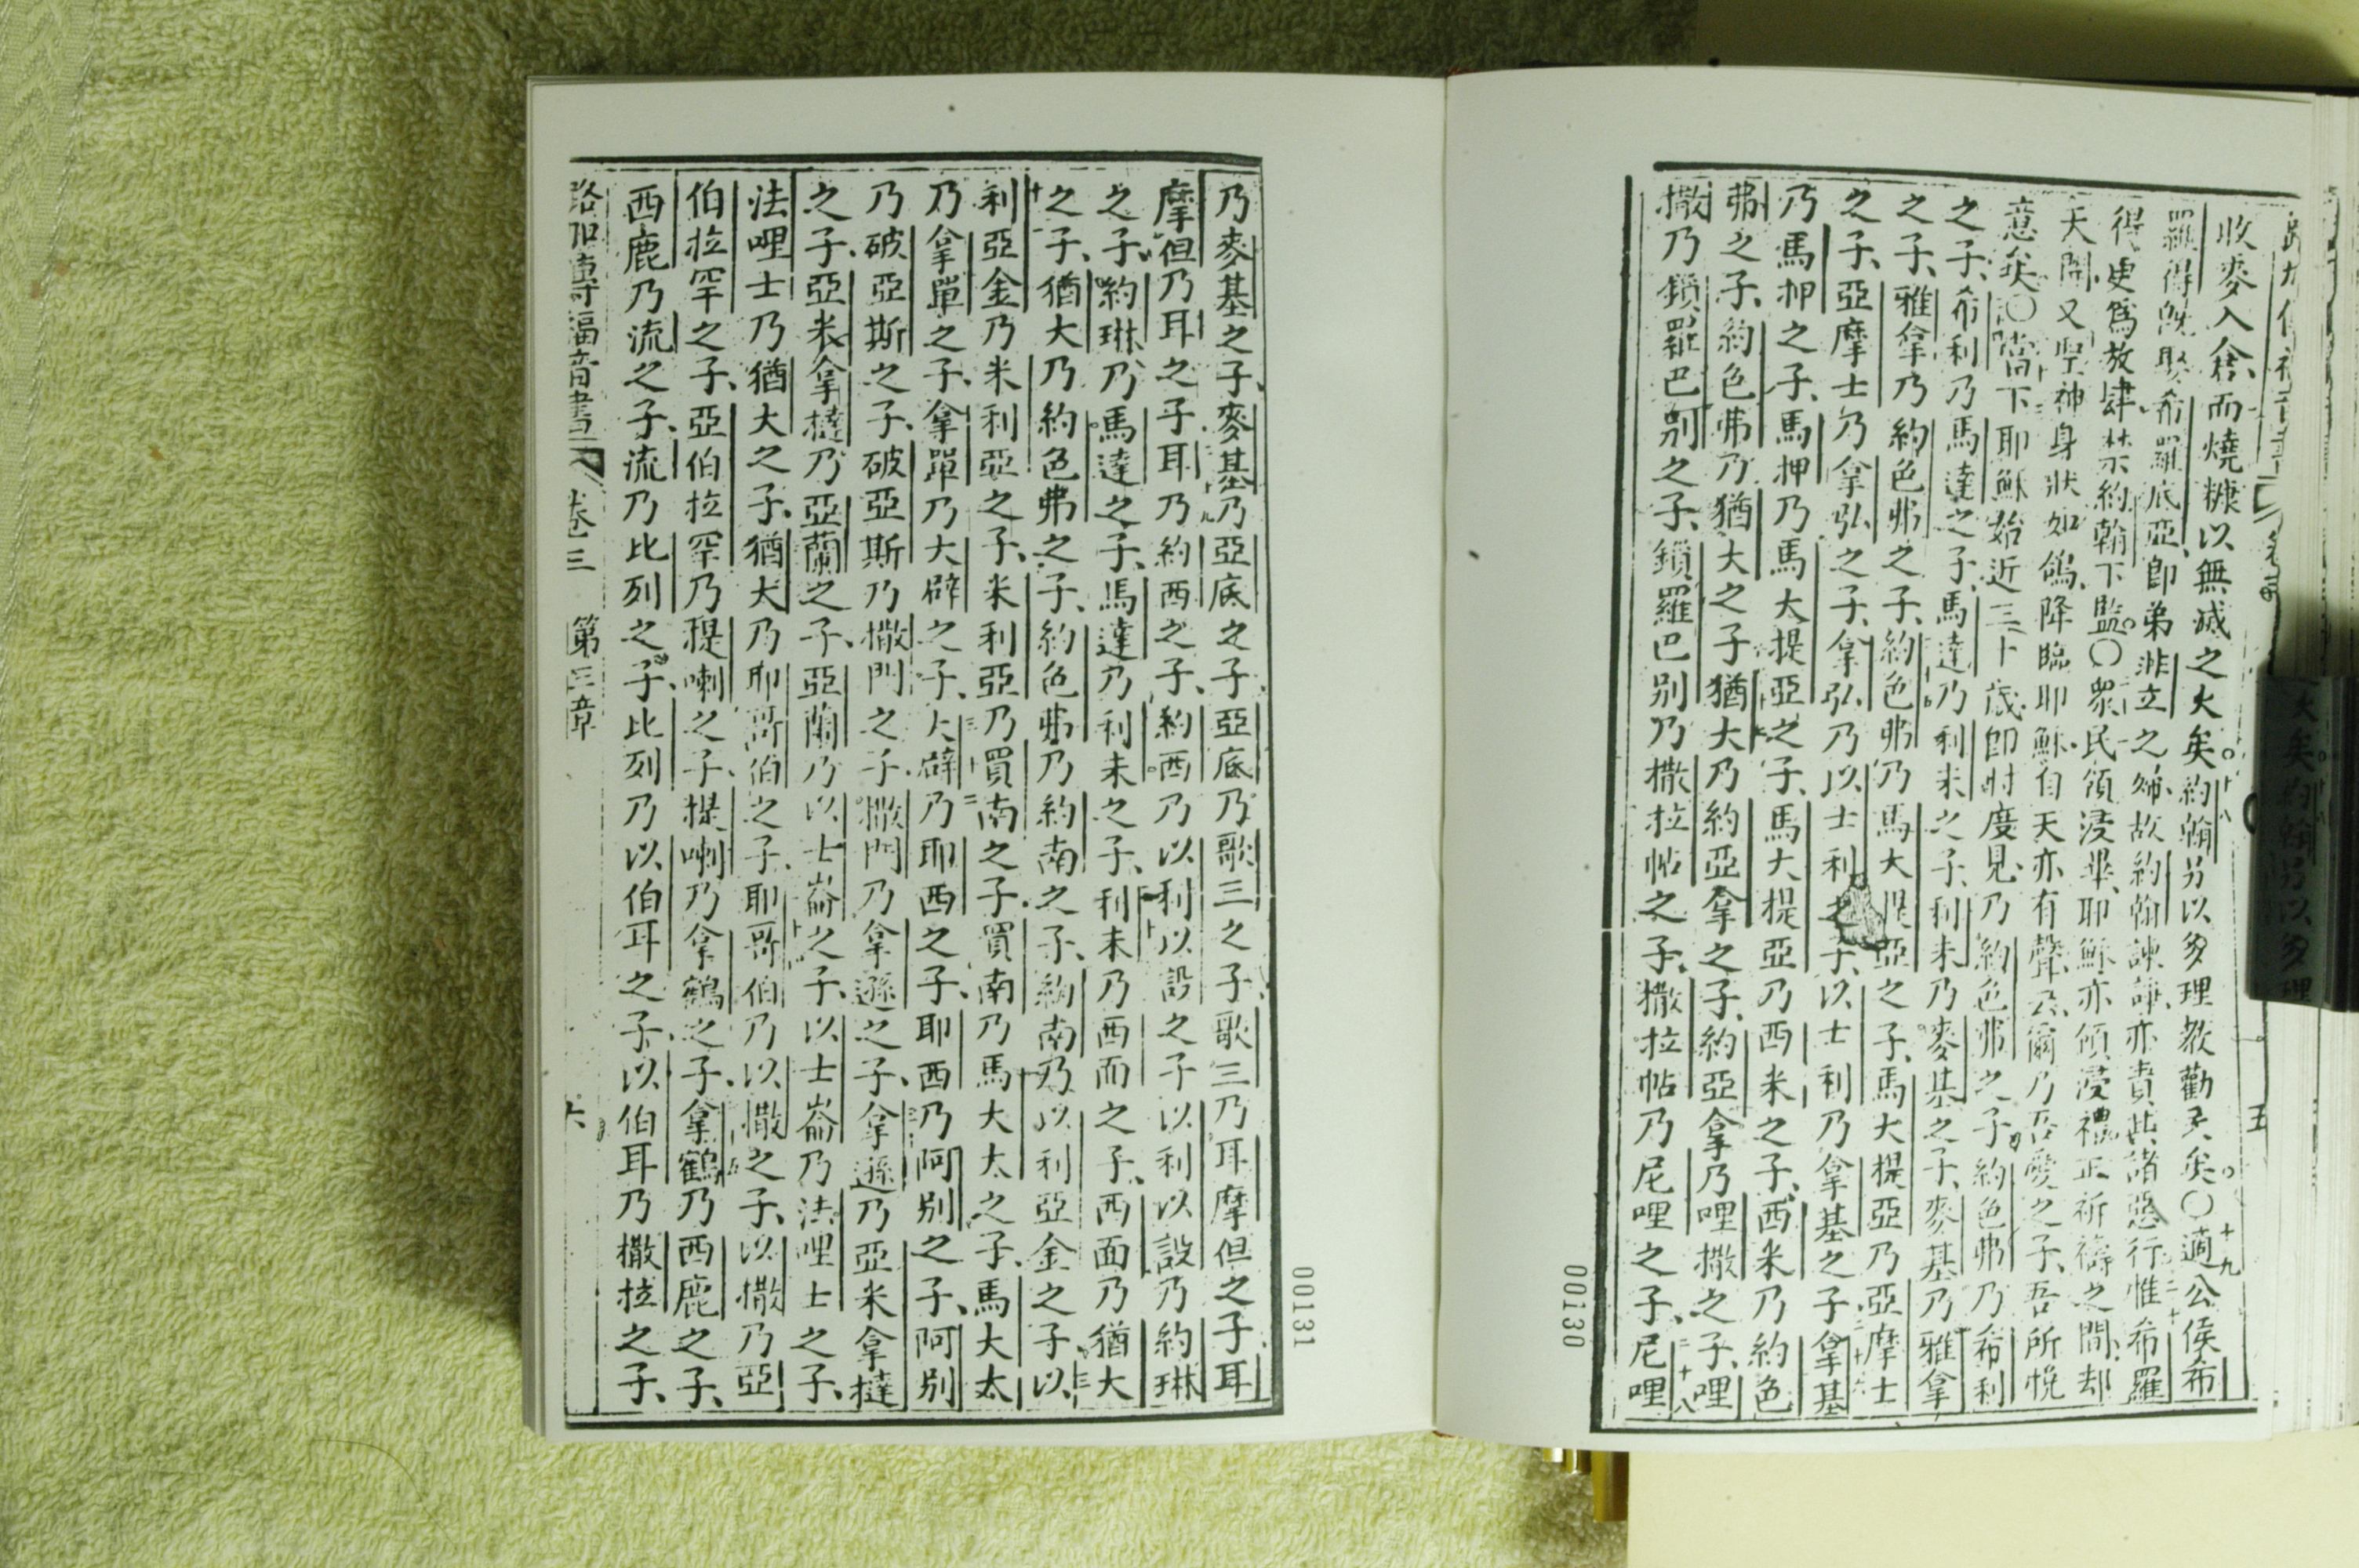 收麥入倉而燒糠以無滅之火矣約翰另以多理教勸人矣〇適公侯希
羅得既娶希羅底亞即弟非立之婦故約翰諫誨亦責其諸惡行惟希羅
得更為放肆禁約翰下監〇眾民領浸畢耶穌亦領浸禮正祈禱之間却
天開又聖神身狀如鴿降臨耶穌自天亦有聲云爾乃吾愛之子吾所悅
意矣〇當下耶穌始近三十歲即時度見乃約色弗之子約色弗乃希利
之子希利乃馬達之子馬達乃利未之子利未乃麥基之子麥基乃雅拿
之子雅拿乃約色弗之子約色弗乃馬大提亞之子馬大提亞乃亞摩士
之子亞摩士乃拿弘之子拿弘乃以士利之子以士利乃拿基之子拿基
乃馬押之子馬押乃馬大提亞之子馬大提亞乃西米之子西米乃約色
弗之子約色弗乃猶大之子猶大乃約亞拿之子約亞拿乃哩撒之子哩
撒乃鎖羅巴別之子鎖羅巴別乃撒拉帖之子撒拉帖乃尼哩之子尼哩
五
00130
乃麥基之子麥基乃亞底之子亞底乃歌三之子歌三乃耳摩但之子耳
摩但乃耳之子耳乃約西之子約西乃以利以設之子以利以設乃約琳
之子約琳乃馬達之子馬達乃利未之子利未乃西面之子西面乃猶大
之子猶大乃約色弗之子約色弗乃約南之子約南乃以利亞金之子以
利亞金乃米利亞之子米利亞乃買南之子買南乃馬大太之子馬大太
乃拿單之子拿單乃大辟之子大辟乃耶西之子耶西乃阿別之子阿別
乃破亞斯之子破亞斯乃撒門之子撒門乃拿遜之子拿遜乃亞米拿撻
之子亞米拿撻乃亞蘭之子亞蘭乃以士崙之子以士崙乃法哩士之子
法哩士乃猶大之子猶大乃耶哥伯之子耶哥伯乃以撒之子以撒乃亞
伯拉罕之子亞伯拉罕乃提喇之子提喇乃拿鶴之子拿鶴乃西鹿之子
西鹿乃流之子流乃比列之子比列乃以伯耳之子以伯耳乃撒拉之子
路加傳福音書 卷三 第三章 六
00131